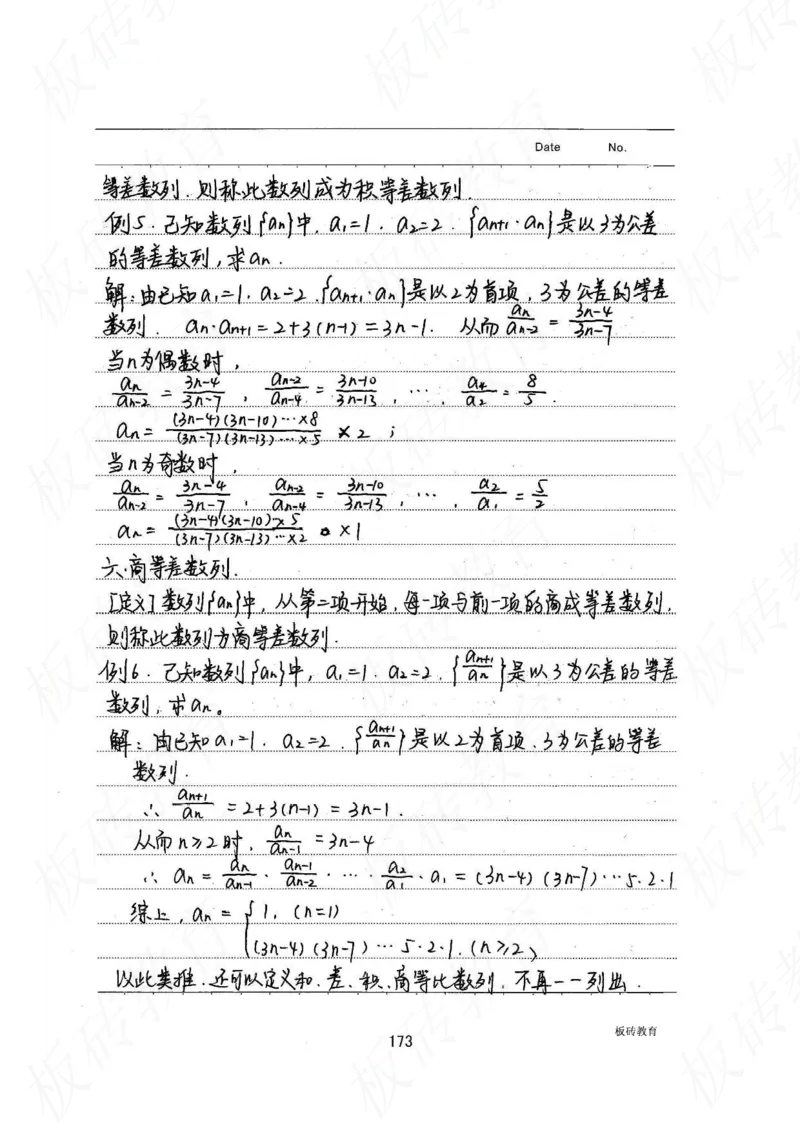 Date No.
等差数列.则称此数列成为积等差数列.
例5.已知数列{an}中,a₁=1.a₂=2.{an+1·an}是以3为公差
的等差数列,求an.
解:由已知a₁=1.a₂=2.{an+1·an}是以2为首项,3为公差的等差
数列. an·an+1=2+3(n-1)=3n-1. 从而 an/an-2 = (3n-4)/(3n-7)
当n为偶数时,
an/an-2 = (3n-4)/(3n-7), an-2/an-4 = (3n-10)/(3n-13), ..., a₄/a₂ = 8/5.
an = (3n-4)(3n-10)...×8/(3n-7)(3n-13)...×5 ×2;
当n为奇数时,
an/an-2 = (3n-4)/(3n-7), an-2/an-4 = (3n-10)/(3n-13), ..., a₂/a₁ = 5/2
an = (3n-4)(3n-10)...×5/(3n-7)(3n-13)...×2 ×1
六.商等差数列.
[定义]数列{an}中,从第二项开始,每一项与前一项的商成等差数列,
则称此数列为商等差数列.
例6.已知数列{an}中,a₁=1.a₂=2.{an+1/an}是以3为公差的等差
数列,求an。
解:由已知a₁=1.a₂=2.{an+1/an}是以2为首项、3为公差的等差
数列.
∴ an+1/an =2+3(n-1)=3n-1.
从而n≥2时, an/an-1 =3n-4
∴ an = an/an-1 · an-1/an-2 · ... · a₂/a₁ · a₁ = (3n-4)(3n-7)...5·2·1
综上,an = { 1, (n=1)
(3n-4)(3n-7)...5·2·1.(n≥2)
以此类推.还可以定义和.差、积、商等比数列,不再一一列出.
173
板砖教育